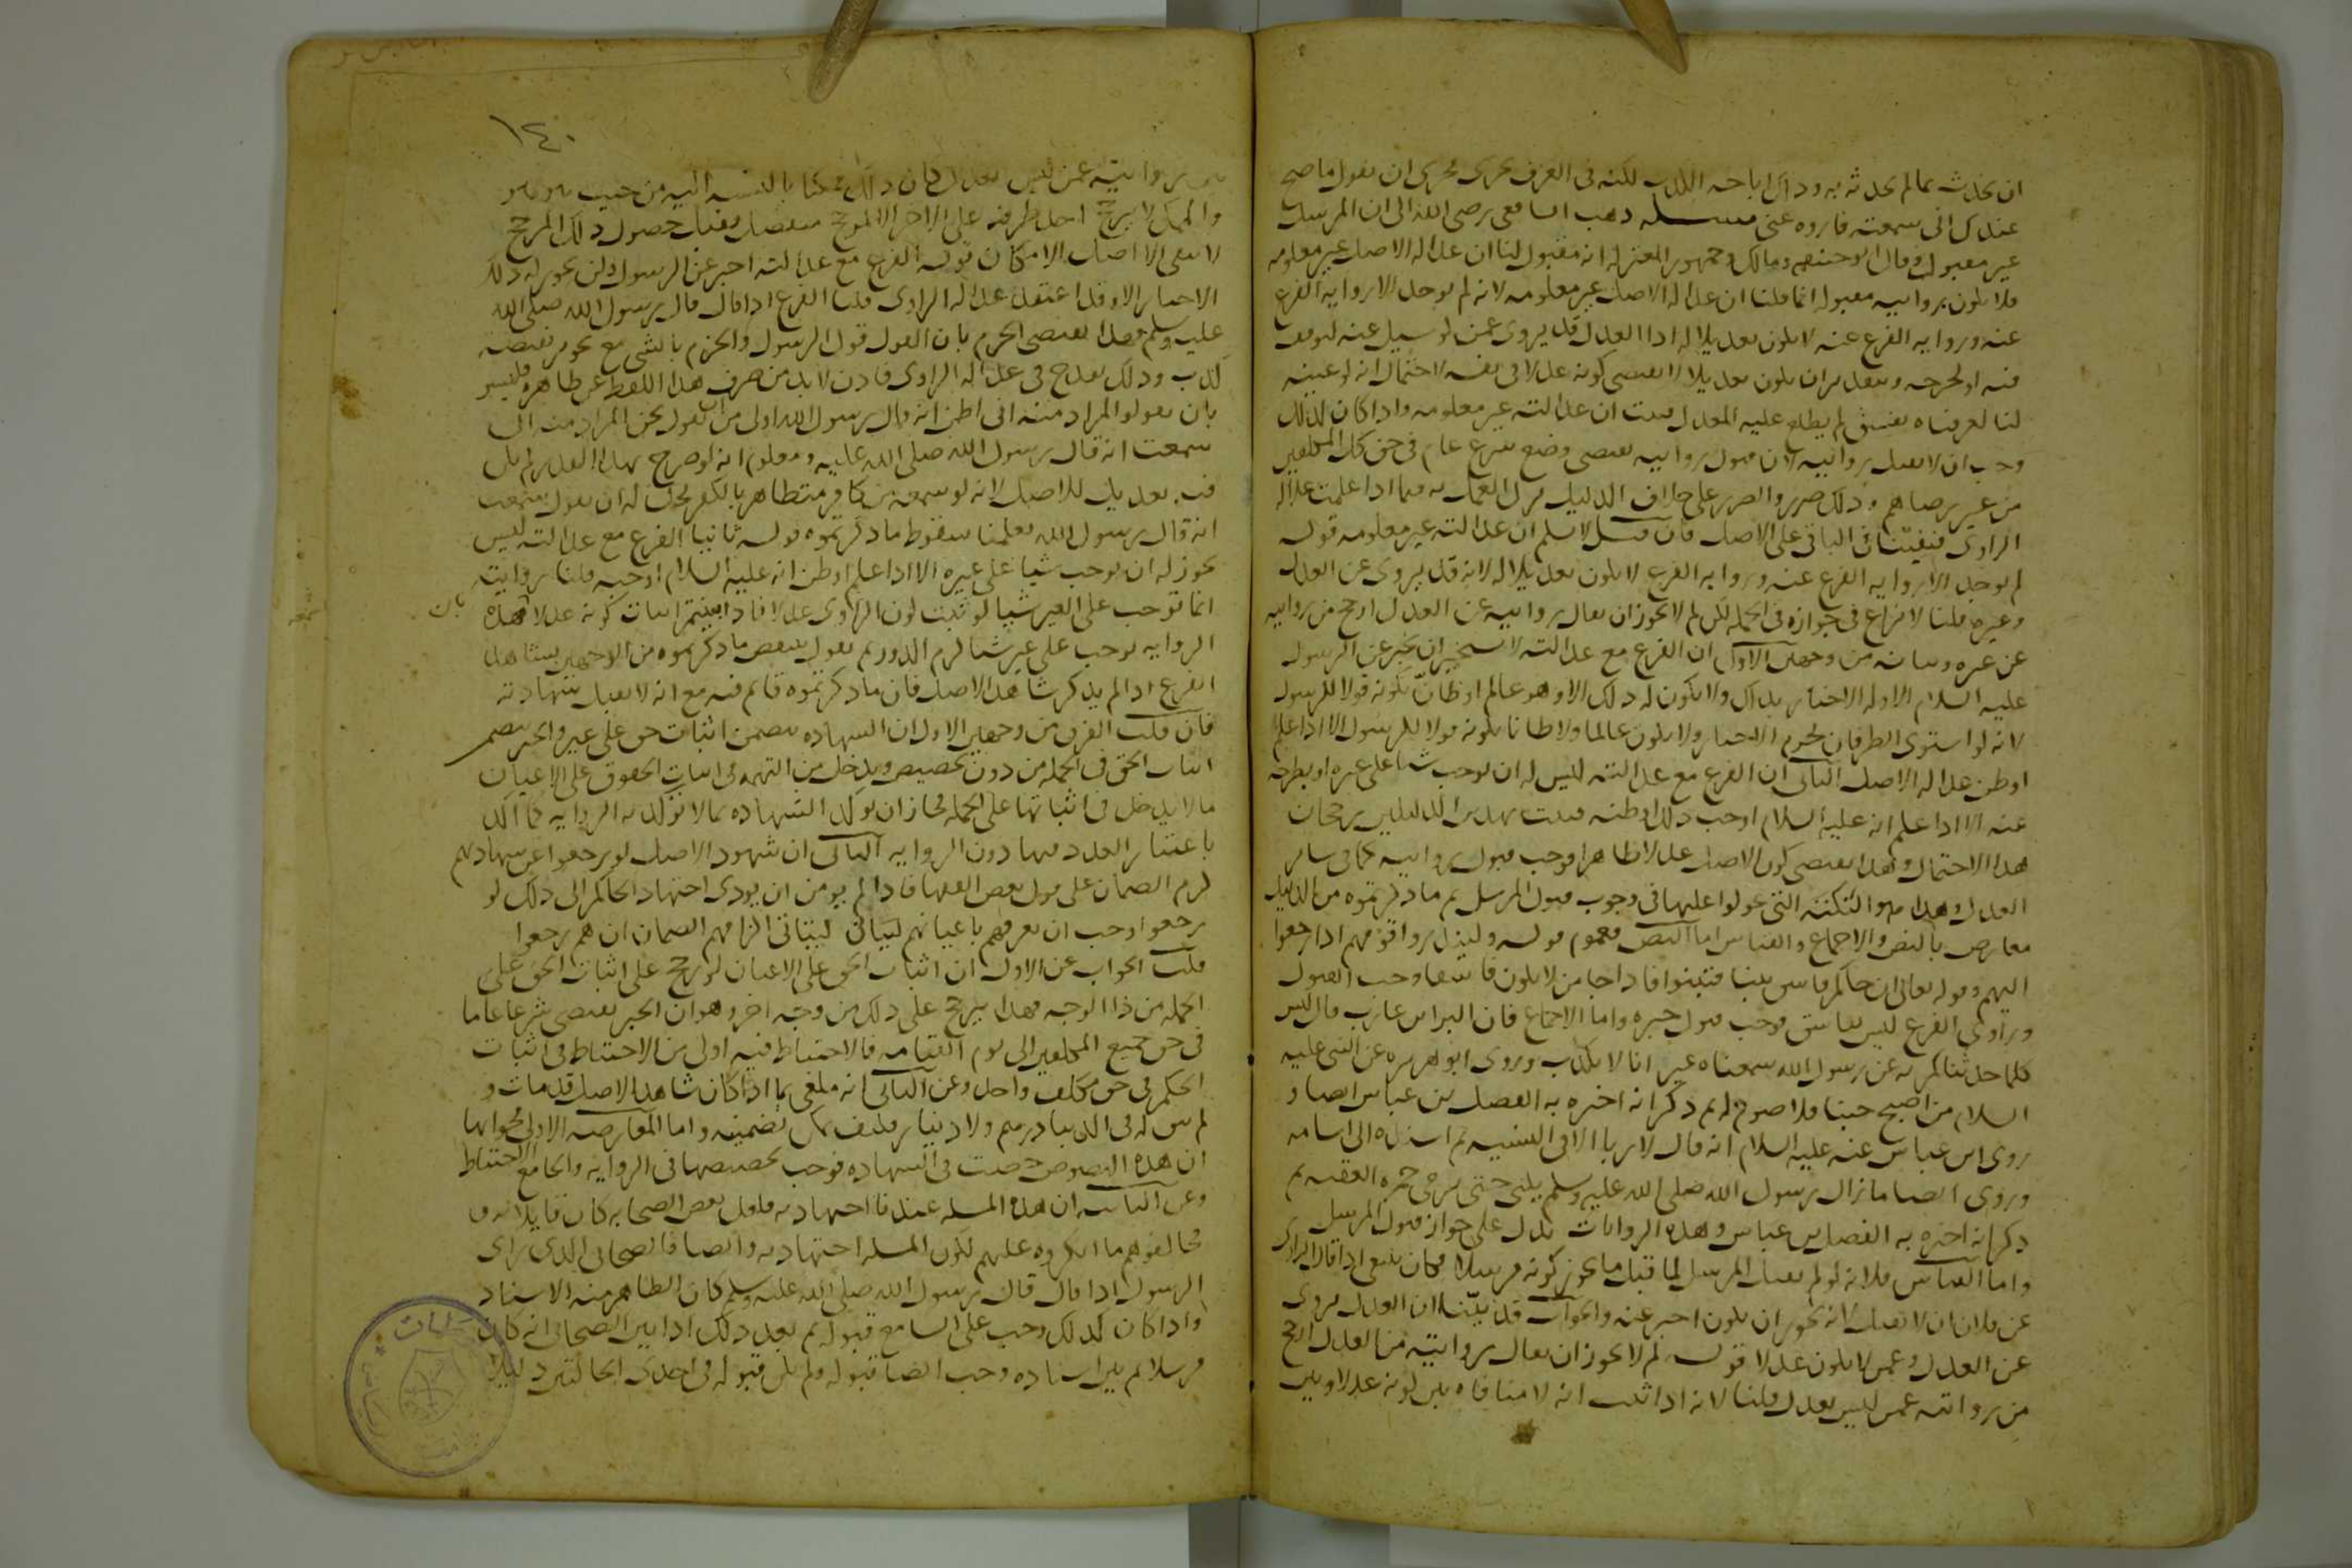 ان يحدث بما لم يحدثه به وذلك اباحه الكذب لكنه في العرف يجرى مجرى ان يقول ما صح
عندك انى سمعته فاروه عنى مسله ذهب الشافعى رضى الله الى ان المرسل
غير مقبول وقال ابو حنيفه ومالك وجمهور المعتزله انه مقبول لنا ان عداله الاصل غير معلومه
فلا يكون روايته مقبوله انما قلنا ان عداله الاصل غير معلومه لانه لم يوجد الا روايه الفرع
عنه وروايه الفرع عنه لا يكون تعديلا له اذ العدل قد يروى عمن لو سيل عنه لتوقف
فيه او لجرحه وبتقدير ان يكون تعديلا لا يقتضى كونه عدلا في نفسه لاحتمال انه لو عينه
لنا لعرفناه بفسق لم يطلع عليه المعدل فثبت ان عدالته غير معلومه واذا كان كذلك
وجب ان لا يقبل روايته لان قبول روايته يقتضى وضع شرع عام في حق كل المكلفين
من غير رضاهم وذلك ضرر والضرر على خلاف الدليل ترك العمل به فيما اذا علمت عداله
الراوى فيبقى في الباقى على الاصل فان قيل لا نسلم ان عدالته غير معلومه قوله
لم يوجد الا روايه الفرع عنه وروايه الفرع لا يكون تعديلا له لانه قد يروى عن العدل
وغيره قلنا لا نزاع في جوازه في الجمله لكن لم لا يجوز ان يقال روايته عن العدل ارجح من روايته
عن غيره وبيانه من وجهين الاول ان الفرع مع عدالته لا يستجيز ان يخبر عن الرسول
عليه السلام الا وله الاخبار بذلك ولا يكون له ذلك الا وهو عالم او ظان بكونه قولا للرسول
لانه لو استوى الطرفان لحرم الاخبار ولا يكون عالما ولا ظانا بكونه قولا للرسول الا اذا علم
او ظن عداله الاصل الثانى ان الفرع مع عدالته ليس له ان يوجب شيا على غيره او يطرحه
عنه الا اذا علم انه عليه السلام اوجب ذلك او ظنه فثبت بهذين الدليلين رجحان
هذا الاحتمال وهذا يقتضى كون الاصل عدلا ظاهرا فوجب قبول روايته كما في ساير
العدل وهذا هو النكته التى عولوا عليها في وجوب قبول المرسل ثم ما ذكرتموه من الدليل
معارض بالنص والاجماع والقياس اما النص فعموم قوله ولينذروا قومهم اذا رجعوا
اليهم وقوله تعالى ان جاكم فاسق بنبا فتبينوا فاذا جا من لا يكون فاسقا وجب القبول
وراوى الفرع ليس بفاسق فوجب قبول خبره واما الاجماع فان البرا بن عازب قال ليس
كلما حدثناكم به عن رسول الله سمعناه غير انا لا نكذب وروى ابو هريره عن النبى عليه
السلام من اصبح جنبا فلا صوم له ثم ذكر انه اخبره به الفضل بن عباس ايضا و
روى ابن عباس عنه عليه السلام انه قال لا ربا الا في النسيه ثم اسنده الى اسامه
وروى ايضا ما زال رسول الله صلى الله عليه وسلم يلبى حتى رمى جمره العقبه ثم
ذكر انه اخبره به الفضل بن عباس وهذه الروايات تدل على جواز قبول المرسل
واما القياس فلانه لو لم يقبل المرسل لما قبل ما يجوز كونه مرسلا فكان ينبغى اذا قال الراوى
عن فلان ان لا يقبل لانه يجوز ان يكون اخبر عنه والجواب قد بينا ان العدل يروى
عن العدل وعمن لا يكون عدلا قوله لم لا يجوز ان يقال روايته من العدل ارجح
من روايته عمن ليس بعدل قلنا لانه اذا ثبت انه لا منافاه بين كونه عدلا وبين
١٤٠
روايته عمن ليس بعدل كان ذلك ممكنا بالنسبه اليه من حيث هو هو
والممكن لا يرجح احد طرفيه على الاخر الا لمرجح منفصل فقبل حصول ذلك المرجح
لا يبقى الا اصل الامكان قوله الفرع مع عدالته اخبر عن الرسول ولن يجوز له ذلك
الاخبار الا وقد اعتقد عداله الراوى قلنا الفرع اذا قال قال رسول الله صلى الله
عليه وسلم فهذا يقتضى الجزم بان القول قول الرسول والجزم بالشى مع تجويز نقيضه
كذب وذلك يقدح في عداله الراوى فاذن لا بد من صرف هذا اللفظ عن ظاهره فليس
بان يقولوا المراد منه انى اظن انه قال رسول الله اولى من ان يقول نحن المراد منه انى
سمعت انه قال رسول الله صلى الله عليه ومعلوم انه لو صرح بهذا القدر لم يكن
فيه تعديل للاصل لانه لو سمعه من كافر متظاهر بالكفر لجاز له ان يقول سمعت
انه قال رسول الله فعلمنا سقوط ما ذكرتموه قوله ثانيا الفرع مع عدالته ليس
يجوز له ان يوجب شيا على غيره الا اذا علم او ظن انه عليه السلام اوجبه قلنا روايته
انما توجب على الغير شيا لو ثبت كون الراوى عدلا فاذا بينتم اثبات كونه عدلا بان هذه
الروايه توجب على غير شيا لزم الدور ثم نقول ينتقض ما ذكرتموه من الوجهين بشاهد
الفرع اذا لم يذكر شاهد الاصل فان ما ذكرتموه قايم فيه مع انه لا يقبل شهادته
فان قلت الفرق من وجهين الاول ان الشهاده تتضمن اثبات حق على عين والخبر يتضمن
اثبات الحق في الجمله من دون تخصيص ويدخل من التهمه في اثبات الحقوق على الاعيان
ما لا يدخل في اثباتها على الجمله فجاز ان توكد الشهاده بما لا توكد به الروايه كما اكد
باعتبار العدد فيها دون الروايه الثانى ان شهود الاصل لو رجعوا عن شهادتهم
لزم الضمان على قول بعض الفقها فاذا لم يومن ان يودى اجتهاد الحاكم الى ذلك لو
رجعوا وجب ان يعرفهم باعيانهم ليتاتى الزامهم الضمان ان هم رجعوا
قلت الجواب عن الاول ان اثبات الحق على الاعيان لو رجح على اثبات الحق على
الجمله من ذا الوجه فهذا يرجح على ذلك من وجه اخر وهو ان الخبر يقتضى شرعا عاما
في حق جميع المكلفين الى يوم القيامه فالاحتياط فيه اولى من الاحتياط في اثبات
الحكم في حق مكلف واحد وعن الثانى انه ملغى بما اذا كان شاهد الاصل قد مات و
لم يكن له في الدنيا درهم ولا دينار فكيف يمكن تضمينه واما المعارضه الاولى فجوابها
ان هذه النصوص خصت في الشهاده فوجب تخصيصها في الروايه والجامع الاحتياط
وعن الثانيه ان هذه المسله عندنا اجتهاديه فلعل بعض الصحابه كان قايلا به و
مخالفوهم ما انكروه عليهم لكون المسله اجتهاديه وايضا فالصحابى الذى راى
الرسول اذا قال قال رسول الله صلى الله عليه وسلم كان الظاهر منه الاسناد
واذا كان كذلك وجب على السامع قبوله ثم بعد ذلك اذا بين الصحابى انه كان
مرسلا ثم بين اسناده وجب ايضا قبوله ولم يكن قبوله في احدى الحالتين دليلا